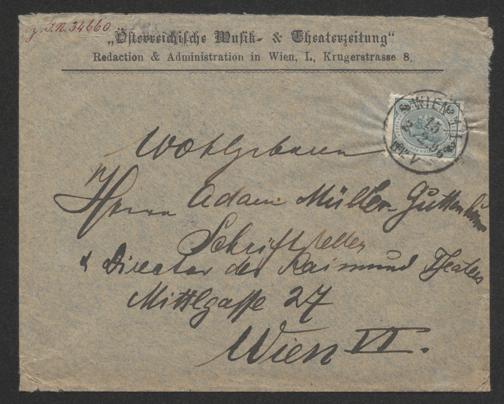 J.N. 34660
„Österreichische Musik- & Theaterzeitung"
Redaction & Administration in Wien, I., Krugerstrasse 8.
WIEN
15
Wohlgeboren
Herrn Adam Müller-Guttenbrunn
Schriftsteller
& Director des Raimund Theaters
Mittlgasse 27
Wien VI.